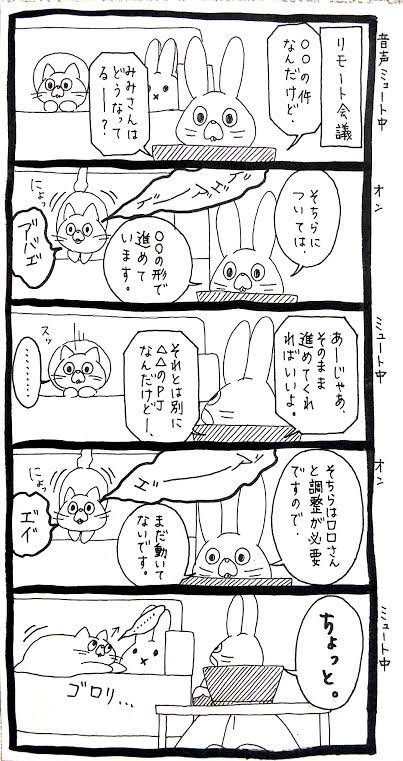 リモート会議
音声ミュート中
〇〇の件
なんだけど
みみさんは
どうなって
るー？
オン
そちらに
ついては、
〇〇の形で
進めて
います。
アアアア
アバエ
にょっ
ミュート中
あーじゃあ、
そのまま
進めてくれ
ればいいよ。
それとは別に
△△のPJ
なんだけどー、
スッ
………
オン
そちらは口口さん
と調整が必要
ですので、
まだ動いて
ないです。
エ゛ー
エ゛イ
にょっ
ミュート中
ちょっと。
ゴロリ…